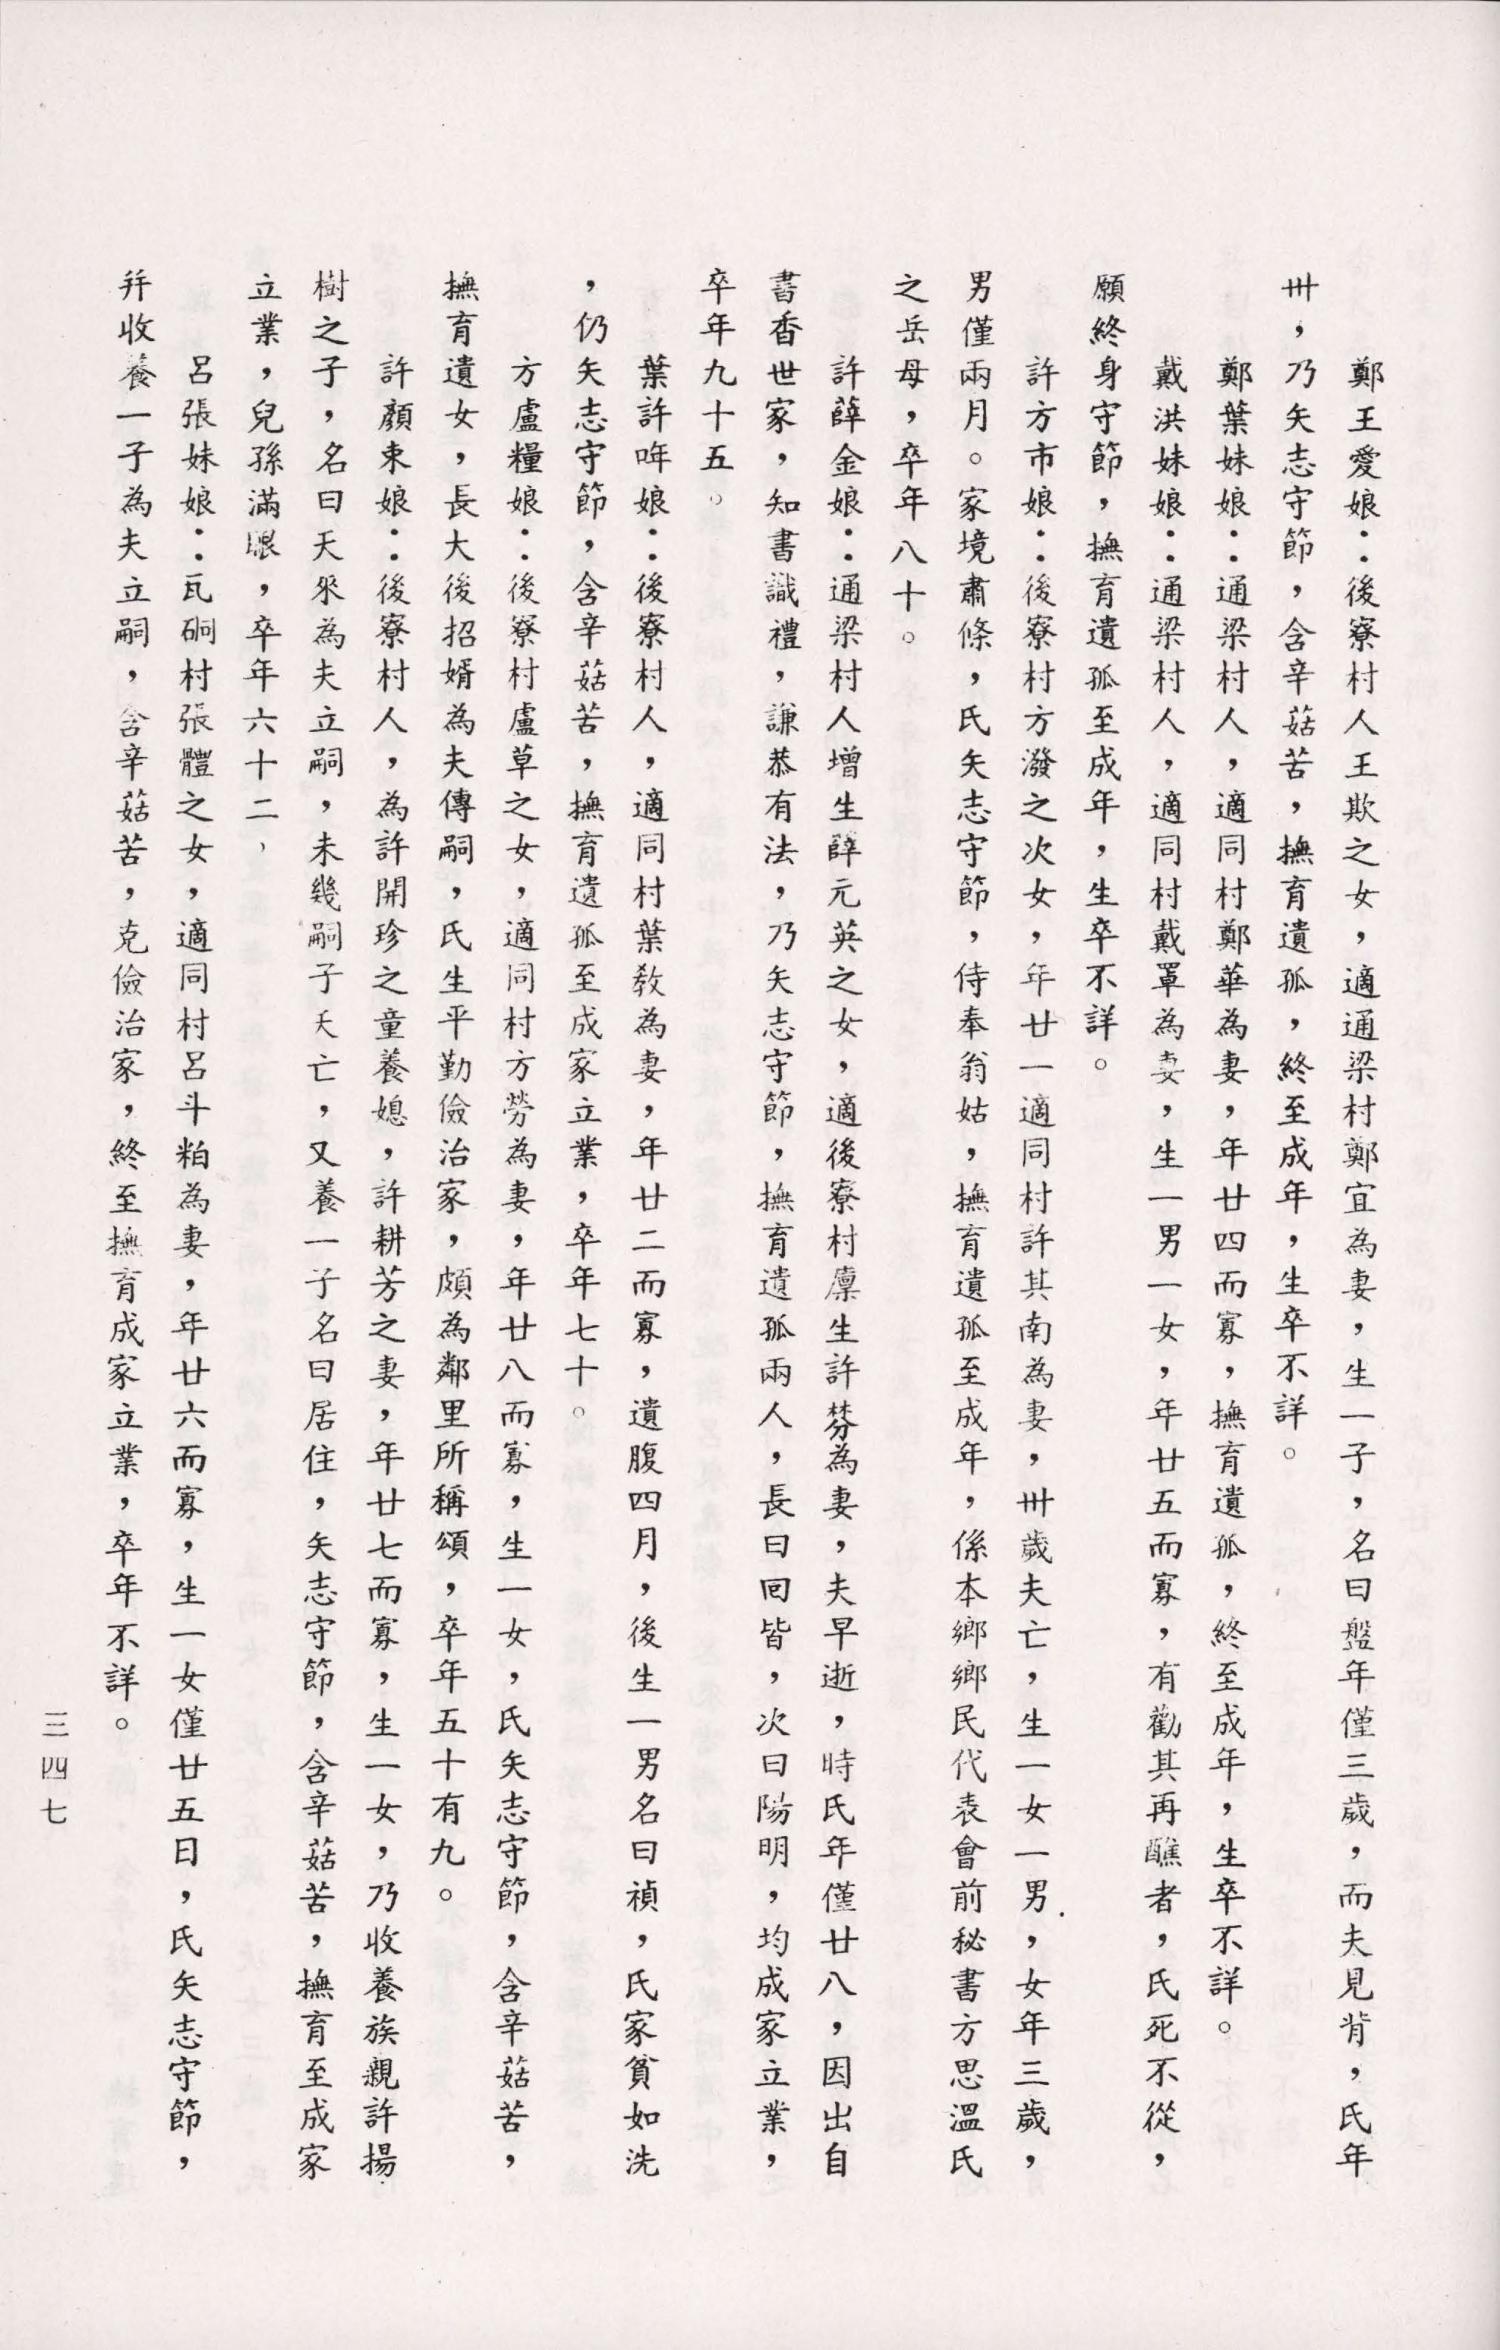 鄭王愛娘：後寮村人王欺之女，適通梁村鄭宜為妻，生一子，名曰盤年僅三歲，而夫見背，氏年
卅，乃矢志守節，含辛菇苦，撫育遺孤，終至成年，生卒不詳。
鄭葉妹娘：通梁村人，適同村鄭華為妻，年廿四而寡，撫育遺孤，終至成年，生卒不詳。
戴洪妹娘：通梁村人，適同村戴罩為妻，生一男一女，年廿五而寡，有勸其再醮者，氏死不從，
願終身守節，撫育遺孤至成年，生卒不詳。
許方市娘：後寮村方潑之次女，年廿一適同村許其南為妻，卅歲夫亡，生一女一男，女年三歲，
男僅兩月。家境肅條，氏矢志守節，侍奉翁姑，撫育遺孤至成年，係本鄉鄉民代表會前秘書方思溫氏
之岳母，卒年八十。
許薛金娘：通梁村人增生薛元英之女，適後寮村廩生許棼為妻，夫早逝，時氏年僅廿八，因出自
書香世家，知書識禮，謙恭有法，乃矢志守節，撫育遺孤兩人，長曰回皆，次曰陽明，均成家立業，
卒年九十五。
葉許哖娘：後寮村人，適同村葉教為妻，年廿二而寡，遺腹四月，後生一男名曰禎，氏家貧如洗
，仍矢志守節，含辛菇苦，撫育遺孤至成家立業，卒年七十。
方盧糧娘：後寮村盧草之女，適同村方勞為妻，年廿八而寡，生一女，氏矢志守節，含辛菇苦，
撫育遺女，長大後招婿為夫傳嗣，氏生平勤儉治家，頗為鄰里所稱頌，卒年五十有九。
許顏束娘：後寮村人，為許開珍之童養媳，許耕芳之妻，年廿七而寡，生一女，乃收養族親許揚
樹之子，名曰天來為夫立嗣，未幾嗣子夭亡，又養一子名曰居住，矢志守節，含辛菇苦，撫育至成家
立業，兒孫滿眼，卒年六十二，
呂張妹娘：瓦硐村張體之女，適同村呂斗粕為妻，年廿六而寡，生一女僅廿五日，氏矢志守節，
幷收養一子為夫立嗣，含辛菇苦，克儉治家，終至撫育成家立業，卒年不詳。
三四七